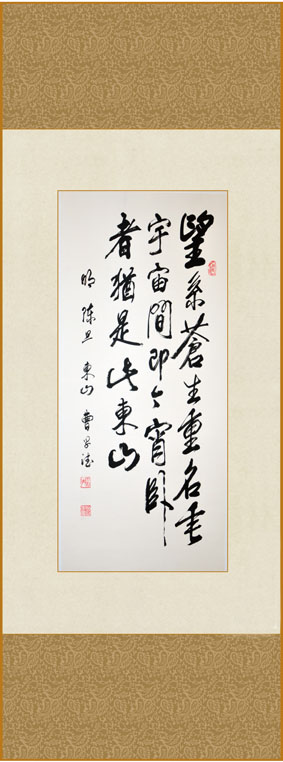 望系蒼生重名垂
宇宙間即今宵卧
者猶是此東山
明 陳旦 東山 曹